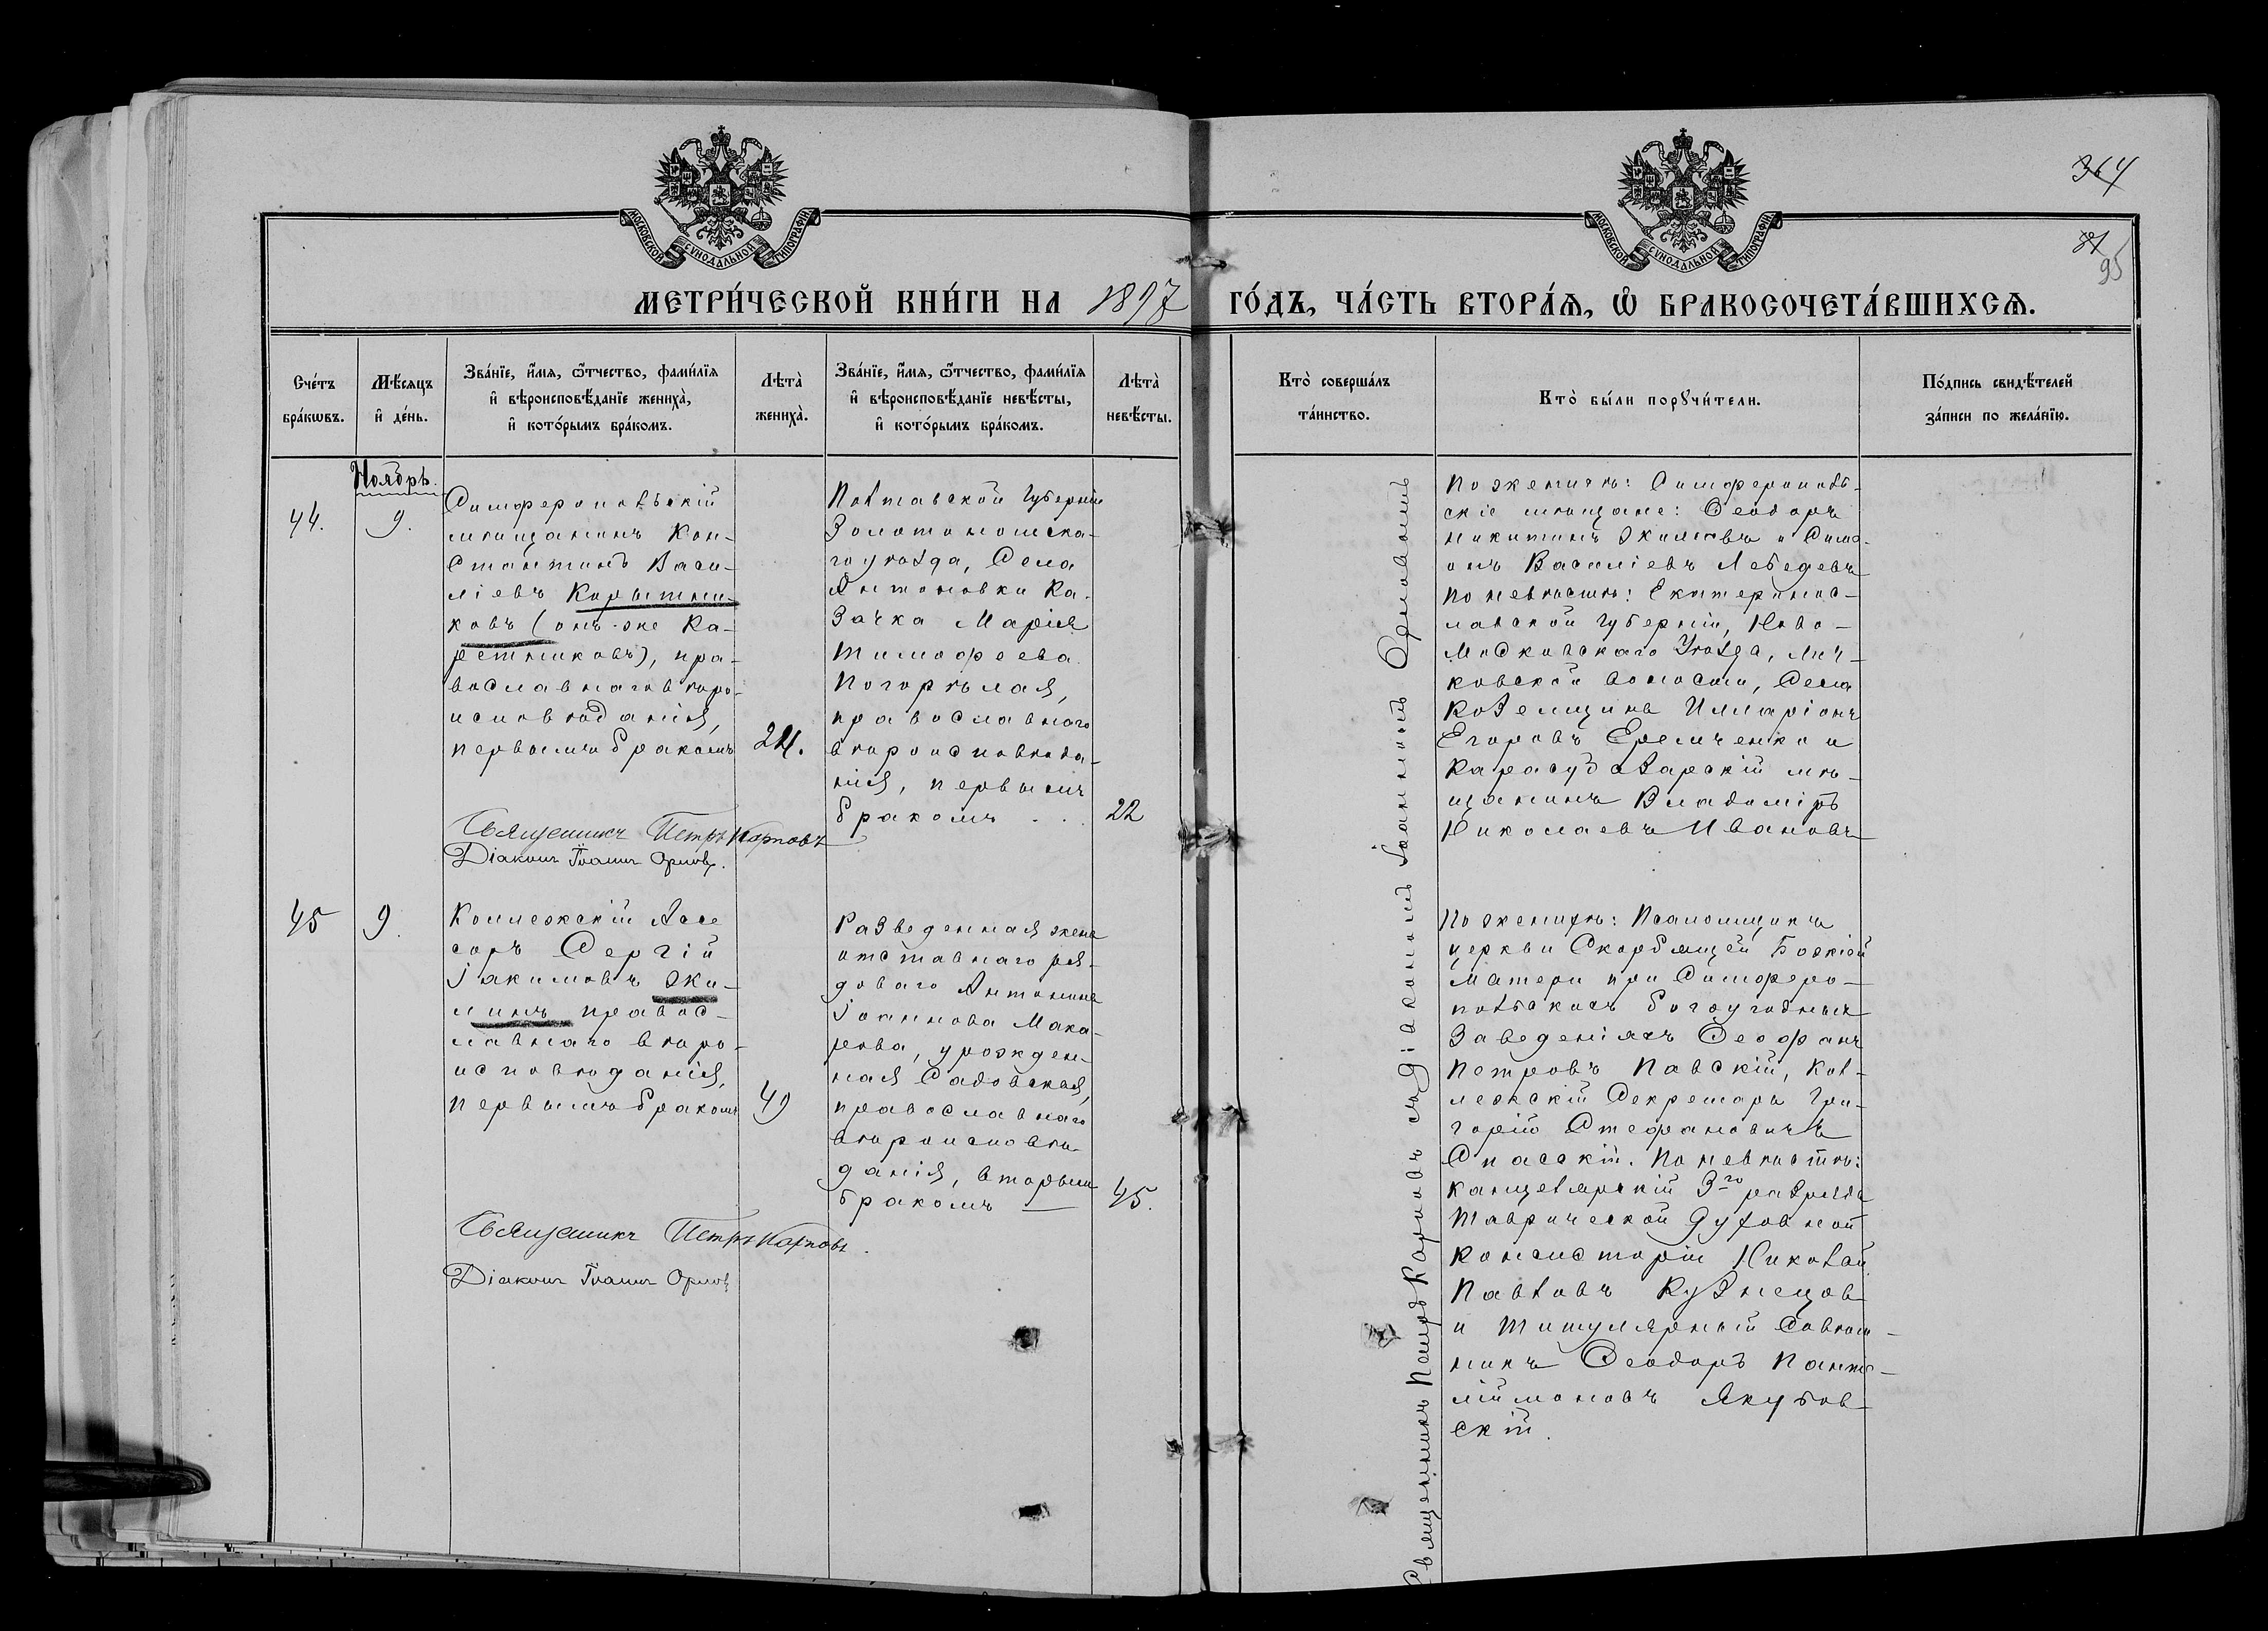 364
81
95
МОСКОВСКОЙ СѴНОДАЛЬНОЙ ТИПОГРАФІИ
МОСКОВСКОЙ СѴНОДАЛЬНОЙ ТИПОГРАФІИ
МЕТРИ́ЧЕСКОЙ КНИ́ГИ НА 1897 ГО́ДЪ, ЧА́СТЬ ВТОРА́Ѧ, Ѡ҆ БРАКОСОЧЕТА́ВШИХСѦ.
Сче́тъ
бра́кѡвъ.
Мѣ́сяцъ
и҆ де́нь.
Зва́нїе, и҆́мѧ, ѻ҆́тчество, фами́лїѧ
и҆ вѣроисповѣ́данїе жениха̀,
и҆ кото́рымъ бра́комъ.
Лѣ́та̀
жениха̀.
Зва́нїе, и҆́мѧ, ѻ҆́тчество, фами́лїѧ
и҆ вѣроисповѣ́данїе невѣ́сты,
и҆ кото́рымъ бра́комъ.
Лѣ́та̀
невѣ́сты.
Кто̀ соверша́лъ
та́инство.
Кто̀ бы́ли порꙋчи́тели.
По́дпись свидѣ́телей
за́писи по жела́нїю.
Ноябрь.
44.
9.
Симферопольскій
мѣщанинъ Кон-
стантинъ Васи-
ліевъ Корытни-
ковъ (онъ-же Ка-
ретниковъ), пра-
вославнаго вѣро-
исповѣданія,
первымъ бракомъ
24.
Полтавской Губерніи
Золотоношска-
го уѣзда, Села
Антоновки Ка-
зачка Марія
Тимофеева
Погорѣлая,
православнаго
вѣроисповѣда-
нія, первымъ
бракомъ . .
22
Священникъ Петръ Карповъ
Діаконъ Іоаннъ Орловъ.
По женихѣ: Симферополь-
скіе мѣщане: Феодоръ
Никитинъ Экимовъ и Симе-
онъ Василіевъ Лебедевъ
По невѣстѣ: Екатеринос-
лавской Губерніи, Ново-
московскаго Уѣзда, Лич-
ковской волости, Села
Козелщина Илларіонъ
Егоровъ Еремченко и
Карасубазарскій мѣ-
щанинъ Владиміръ
Николаевъ Ивановъ
Священникъ Петръ Карповъ съ діакономъ Іоанномъ Орловымъ
45
9.
Коллежскій Ассе
соръ Сергій
Іакимовъ Эки-
линъ правос-
лавнаго вѣро-
исповѣданія,
первымъ бракомъ
49
Разведенная жена
отставнаго ря-
доваго Антонина
Іоаннова Мака-
рова, урожден-
ная Садовская,
православнаго
вѣроисповѣ-
данія, вторымъ
бракомъ —
45.
Священникъ Петръ Карповъ.
Діаконъ Іоаннъ Орловъ
По женихѣ: Псаломщикъ
церкви Скорбящей Божіей
Матери при Симферо-
польскихъ богоугодныхъ
заведеніяхъ Феофанъ
Петровъ Павскій, Кол-
лежскій Секретарь Гри-
горій Стефановичъ
Спасскій. По невѣстѣ:
канцелярскій 3го разряда
Таврической Духовной
Консисторіи Николай
Павловъ Кузнецов
и Титулярный Совѣт-
никъ Феодоръ Панте-
леймоновъ Якубов-
скій.